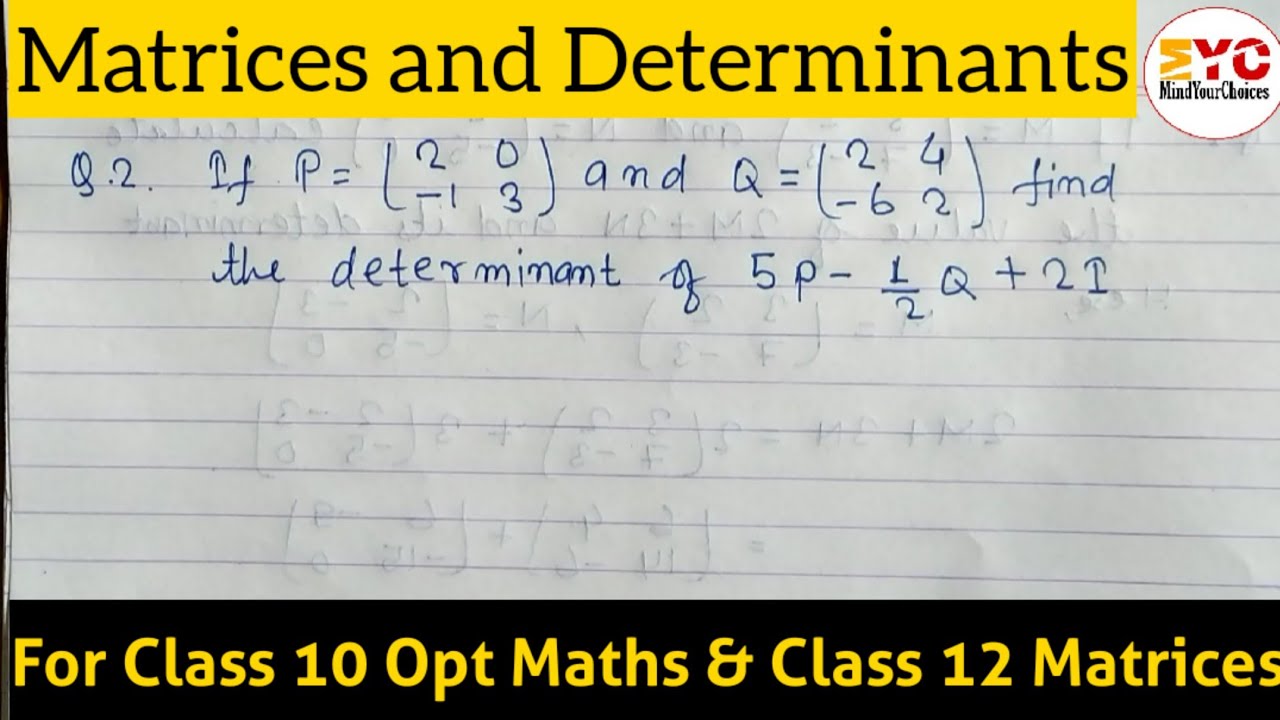 Matrices and Determinants
MYC
MindYourChoices
Q.2. If P = (2 0 and Q = (2 4 find
-1 3) -6 2)
the determinant of 5P - 1/2 Q + 2I
For Class 10 Opt Maths & Class 12 Matrices